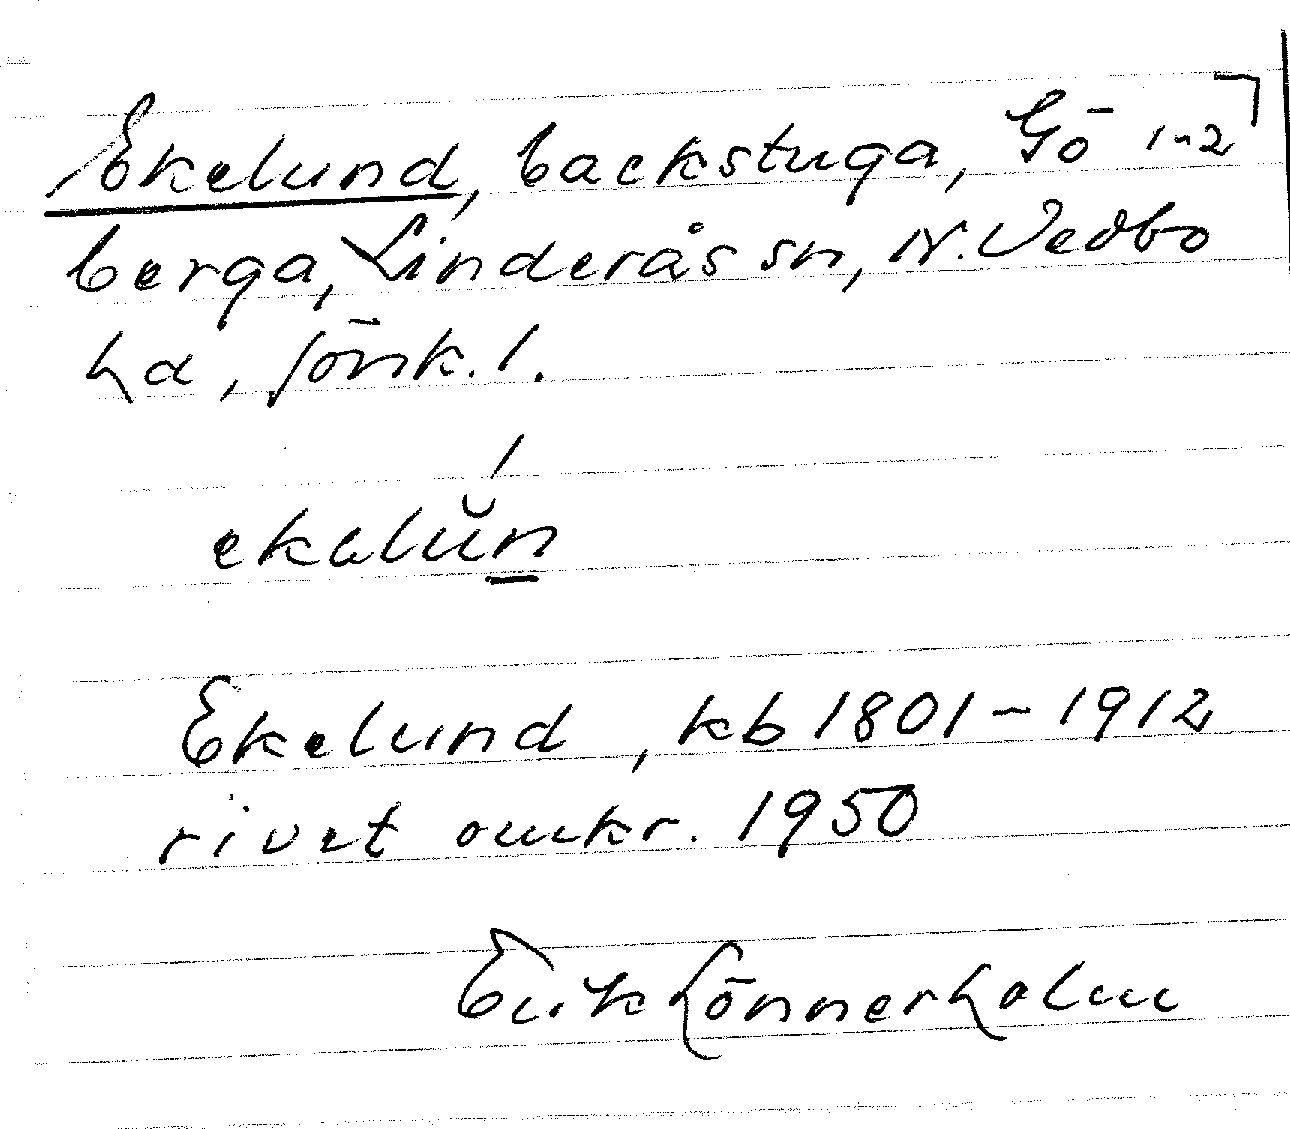 Ekelund, backstuga, Gö 1-2
berga, Linderås sn, N. Vedbo
hd, Jönk. l.
ekəlŭn
Ekelund, kb 1801-1912
rivet omkr. 1950
Erik Lönnerholm